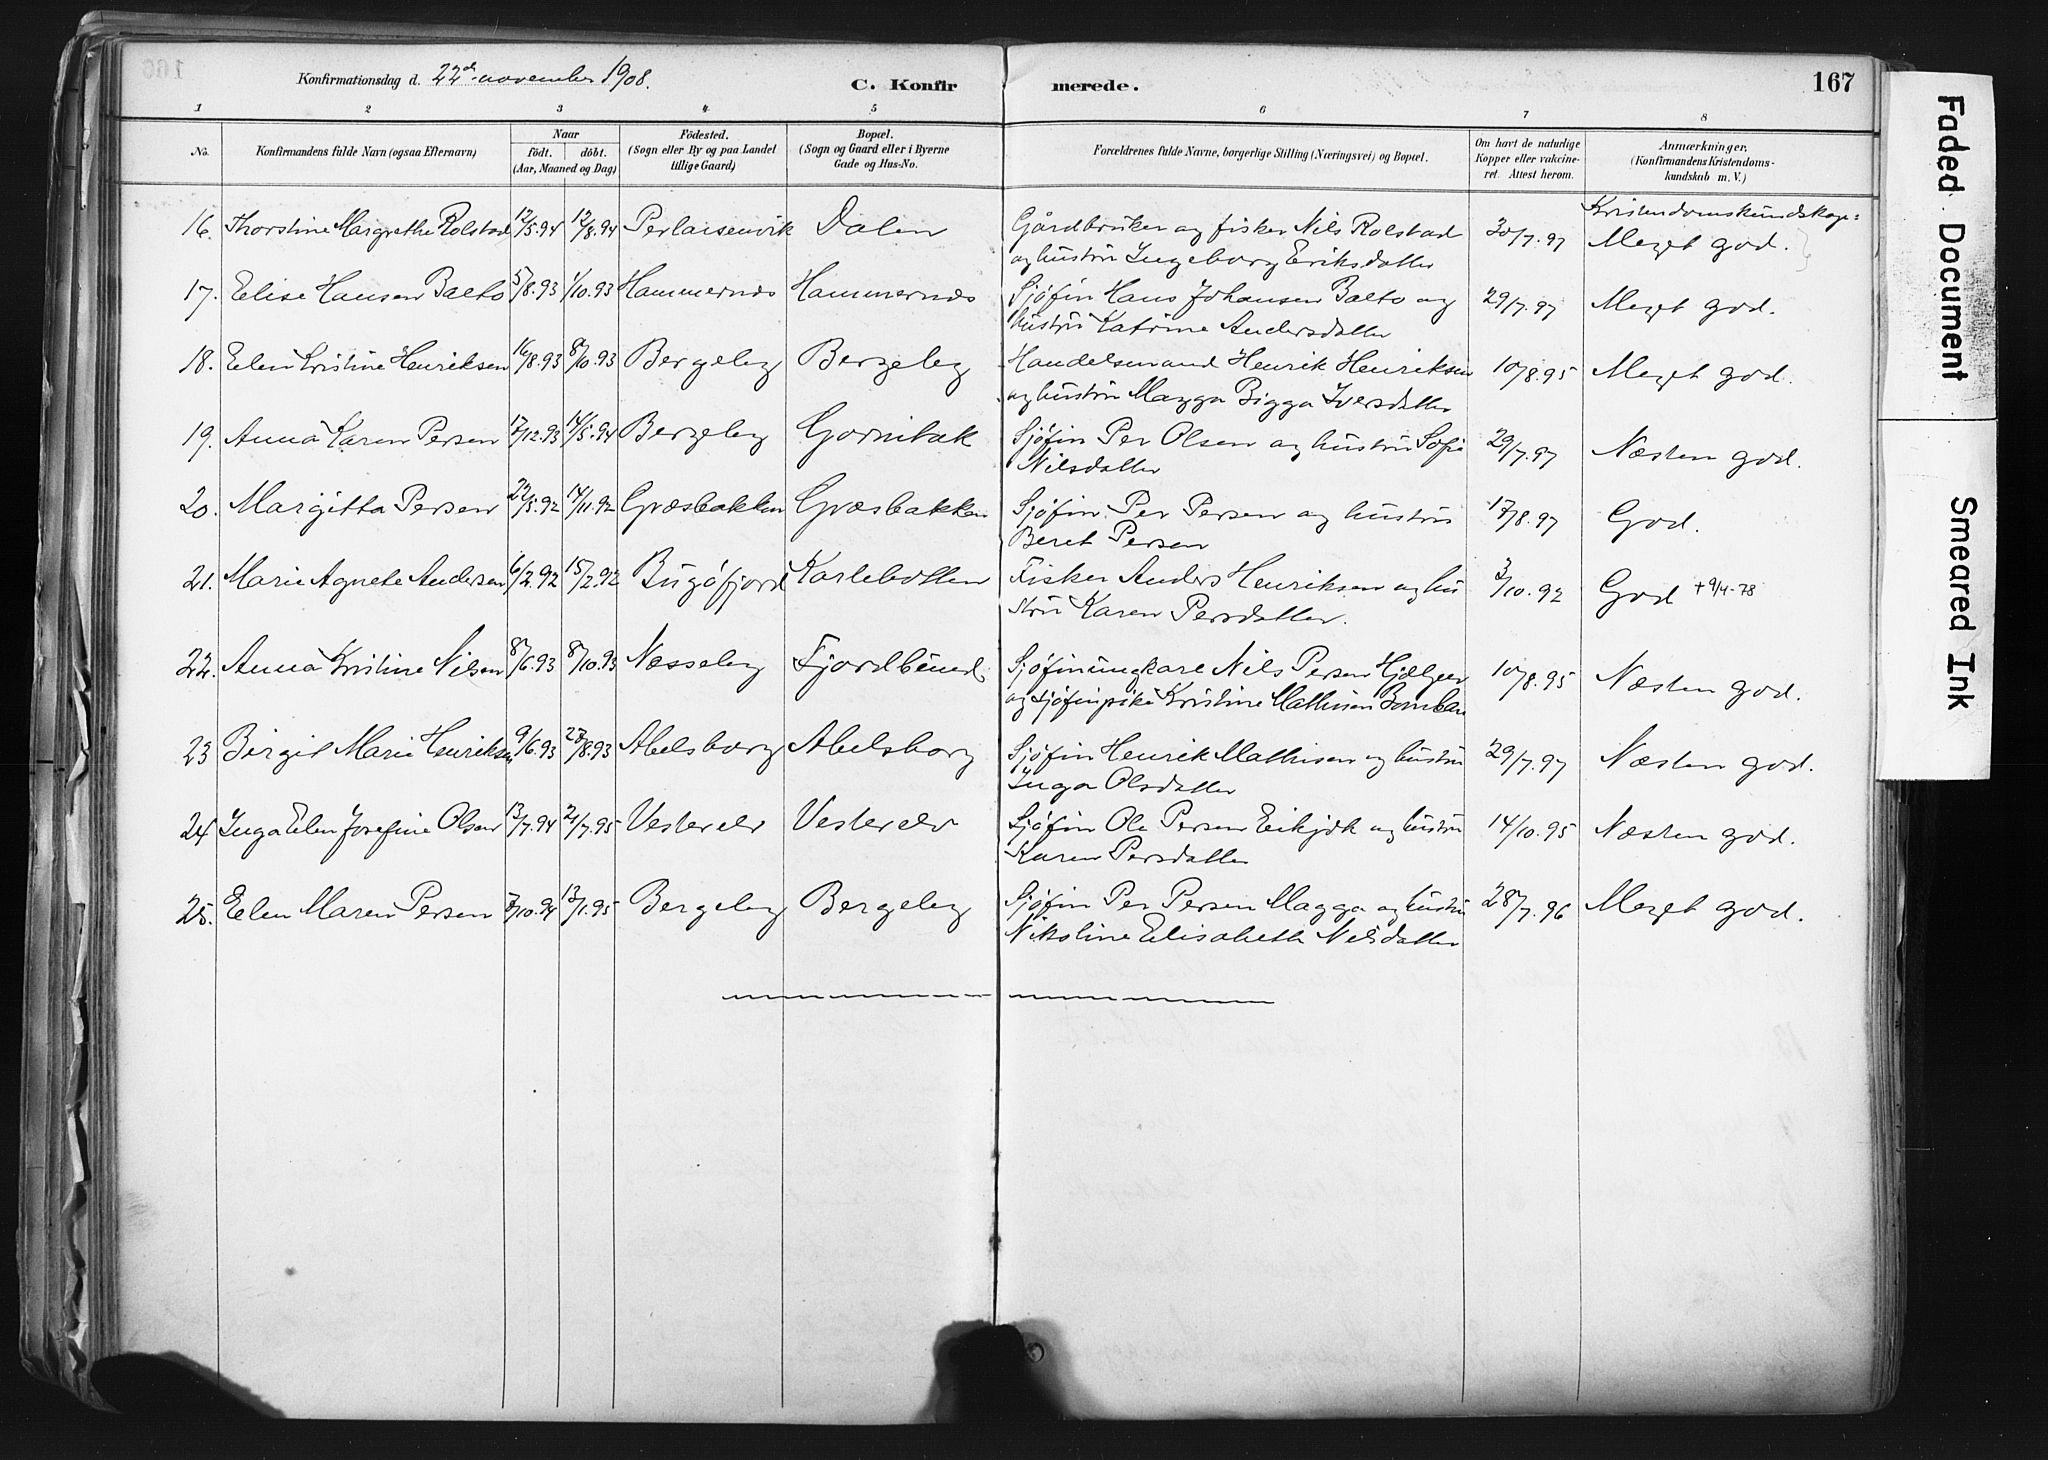 Konfirmationsdag d. 22de november 1908. C. Konfirmerede. 167
1 2 3 4 5 6 7 8
No. Konfirmandens fulde Navn (ogsaa Efternavn) Naar født. døbt. (Aar, Maaned og Dag) Fødested. (Sogn eller By og paa Landet tillige Gaard) Bopæl. (Sogn og Gaard eller i Byerne Gade og Hus-No. Forældrenes fulde Navne, borgerlige Stilling (Næringsvei) og Bopæl. Om havt de naturlige Kopper eller vakcineret. Attest herom. Anmærkninger, (Konfirmandens Kristendomskundskab m. V.)
Kristendomskundskap:
16. Thorstine Margrethe Rolstad 12/5.94 12/8.94 Perlaisenvik Dalen Gårdbruker og fisker Nils Rolstad 30/7.97 Meget god.
og hustru Ingeborg Eriksdatter
17. Elise Hansen Balto 5/8.93 1/10.93 Hammernæs Hammernæs Sjøfin Hans Johansen Balto og 29/7.97 Meget god.
hustru Katrine Andersdatter
18. Elen Kristine Henriksen 16/8.93 8/10.93 Bergeby Bergeby Handelsmand Henrik Henriksen 10/8.95 Meget god.
og hustru Magga Bigga Iversdatter
19. Anna Karen Persen 17/12.93 14/5.94 Bergeby Gornitak Sjøfin Per Olsen og hustru Sofie 29/7.97 Næsten god.
Nilsdatter
20. Margitta Persen 22/5.92 14/11.92 Græsbakken Græsbakken Sjøfin Per Persen og hustru 17/8.97 God.
Beret Persen
21. Marie Agnete Andersen 6/2.92 15/2.92 Bugøfjord Karlebotten Fisker Anders Henriksen og hu 3/10.92 God +9/4-78
stru Karen Persdatter.
22. Anna Kristine Nilsen 8/6.93 8/10.93 Nesseby Fjordbund Sjøfinungkare Nils Persen 10/8.95 Næsten god.
og sjøfinpike Kristine Mathisen
23 Birgit Marie Henriksen 9/6.93 27/8.93 Abelsborg Abelsborg Sjøfin Henrik Mathisen og hustru 29/7.97 Næsten god.
Inga Olsdatter
24 Inga Elen Josefine Olsen 13/7.94 21/7.95 Vesterelv Vesterelv Sjøfin Ole Persen Eikjok og hustru 14/10.95 Næsten god.
Karen Persdatter
25. Elen Maren Persen 7/10.94 13/1.95 Bergeby Bergeby Sjøfin Per Persen Magga og hustru 28/7.96 Meget god.
Nikoline Elisabeth Nilsdatter
Faded Document
Smeared Ink